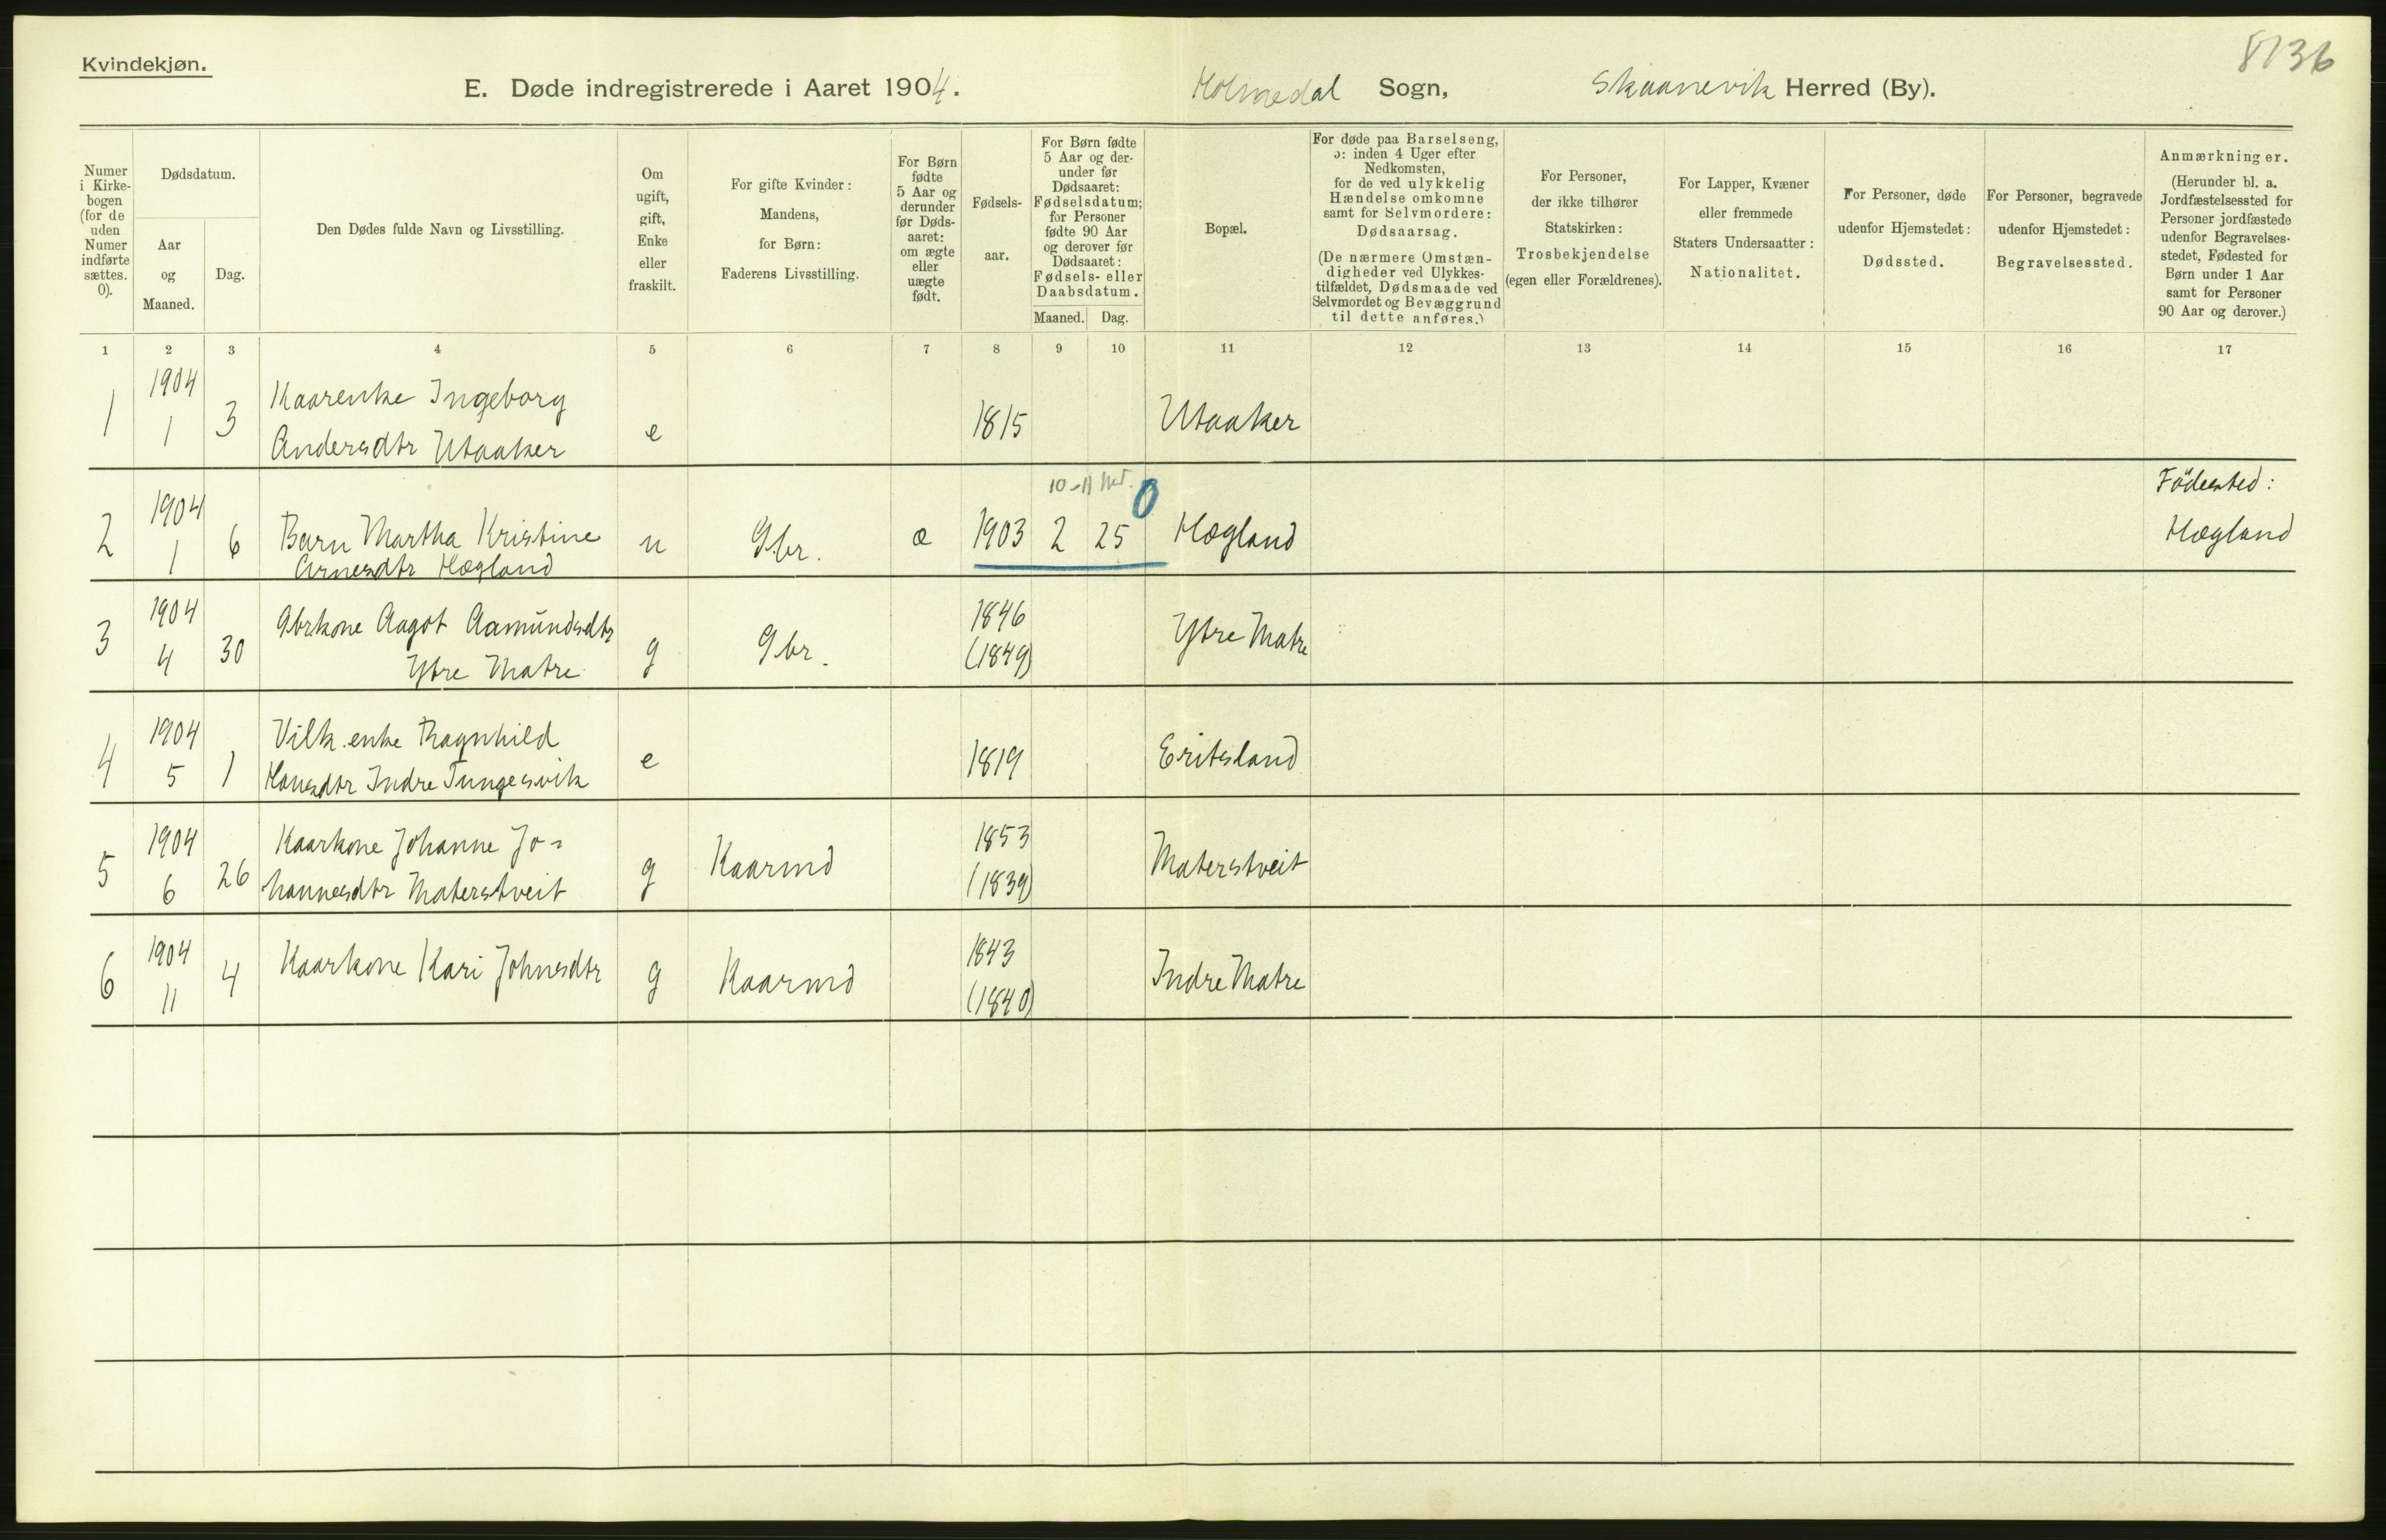 Kvindekjøn.
8136
E. Døde indregistrerede i Aaret 1904. Holmedal Sogn, Skaanevik Herred (By).
Numer i Kirkebogen (for de uden Numer indførte sættes. 0).
Dødsdatum.
Aar og Maaned.
Dag.
Den Dødes fulde Navn og Livsstilling.
Om ugift, gift, Enke eller fraskilt.
For gifte Kvinder: Mandens, for Børn: Faderens Livsstilling.
For Børn fødte 5 Aar og derunder før Dødsaaret: om ægte eller uægte født.
Fødselsaar.
For Børn fødte 5 Aar og derunder før Dødsaaret: Fødselsdatum; for Personer fødte 90 Aar og derover før Dødsaaret: Fødsels- eller Daabsdatum.
Maaned. Dag.
Bopæl.
For døde paa Barselseng, ɔ: inden 4 Uger efter Nedkomsten, for de ved ulykkelig Hændelse omkomne samt for Selvmordere: Dødsaarsag.
(De nærmere Omstændigheder ved Ulykkestilfældet, Dødsmaade ved Selvmordet og Bevæggrund til dette anføres.)
For Personer, der ikke tilhører Statskirken: Trosbekjendelse (egen eller Forældrenes).
For Lapper, Kvæner eller fremmede Staters Undersaatter: Nationalitet.
For Personer, døde udenfor Hjemstedet: Dødssted.
For Personer, begravede udenfor Hjemstedet: Begravelsessted.
Anmærkninger.
(Herunder bl. a. Jordfæstelsessted for Personer jordfæstede udenfor Begravelsesstedet, Fødested for Børn under 1 Aar samt for Personer 90 Aar og derover.)
1 2 3 4 5 6 7 8 9 10 11 12 13 14 15 16 17
1 1904 1 3 Kaarenke Ingeborg
Andersdtr Utaaker e 1815 Utaaker
10-11 Md. 0
2 1904 1 6 Barn Martha Kristine
Arnesdtr Hægland u Gbr. æ 1903 2 25 Hægland Födested:
Hægland
3 1904 4 30 Gbrkone Aagot Aamundsdtr
Ytre Matre g Gbr. 1846 (1849) Ytre Matre
4 1904 5 1 Vilk.enke Ragnhild
Hansdtr Indre Tungesvik e 1819 Eritsland
5 1904 6 26 Kaarkone Johanne Jo-
hannesdtr Materstveit g Kaarmd 1853 (1839) Materstveit
6 1904 11 4 Kaarkone Kari Johnsdtr g Kaarmd 1843 (1840) Indre Matre